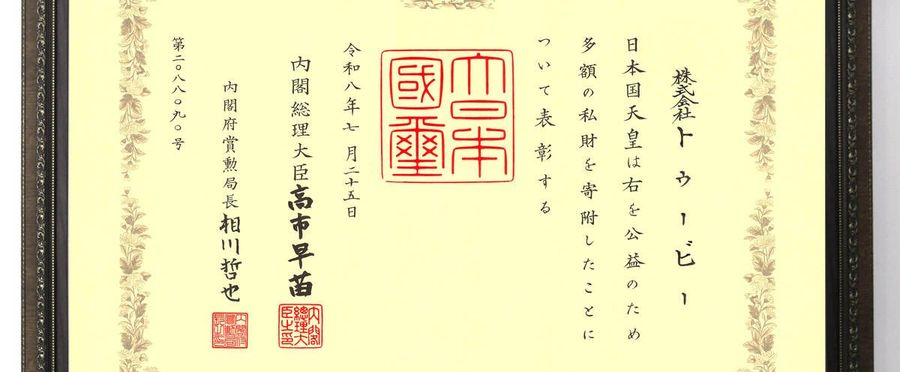 株式会社トゥービー
日本国天皇は右を公益のため
多額の私財を寄附したことに
ついて表彰する
大日本國璽
令和八年七月二十五日
内閣総理大臣高市早苗
内閣総理大臣之印
内閣府賞勲局長相川哲也
第二〇八〇九〇号